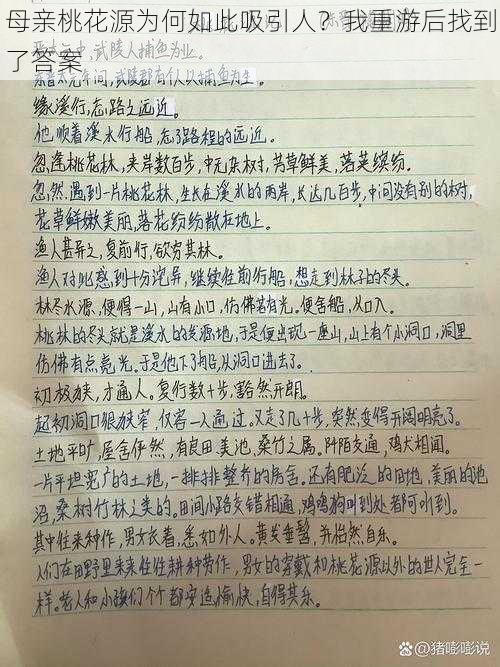 母亲桃花源为何如此吸引人？我重游后找到
了答案
缘溪行,忘路之远近。
他顺着溪水行船,忘了路程的远近。
忽逢桃花林,夹岸数百步,中无杂树,芳草鲜美,落英缤纷。
忽然遇到一片桃花林,生长在溪水的两岸,长达几百步,中间没有别的树,
花草鲜嫩美丽,落花纷纷散在地上。
渔人甚异之,复前行,欲穷其林。
渔人对此感到十分诧异,继续往前行船,想走到林子的尽头。
林尽水源,便得一山,山有小口,仿佛若有光。便舍船,从口入。
桃林的尽头就是溪水的发源地,于是便出现一座山,山上有个小洞口,洞里
仿佛有点亮光。于是他下了船,从洞口进去了。
初极狭,才通人。复行数十步,豁然开朗。
起初洞口很狭窄,仅容一人通过。又走了几十步,突然变得开阔明亮了。
土地平旷,屋舍俨然,有良田美池,桑竹之属。阡陌交通,鸡犬相闻。
一片平坦宽广的土地,一排排整齐的房舍。还有肥沃的田地,美丽的池
沼,桑树竹林之类的。田间小路交错相通,鸡鸣狗叫到处都可听到。
其中往来种作,男女衣着,悉如外人。黄发垂髫,并怡然自乐。
人们在田野里来来往往耕种劳作,男女的穿戴和桃花源以外的世人完全一
样。老人和小孩们个个都安适愉快,自得其乐。
@猪嘭嘭说